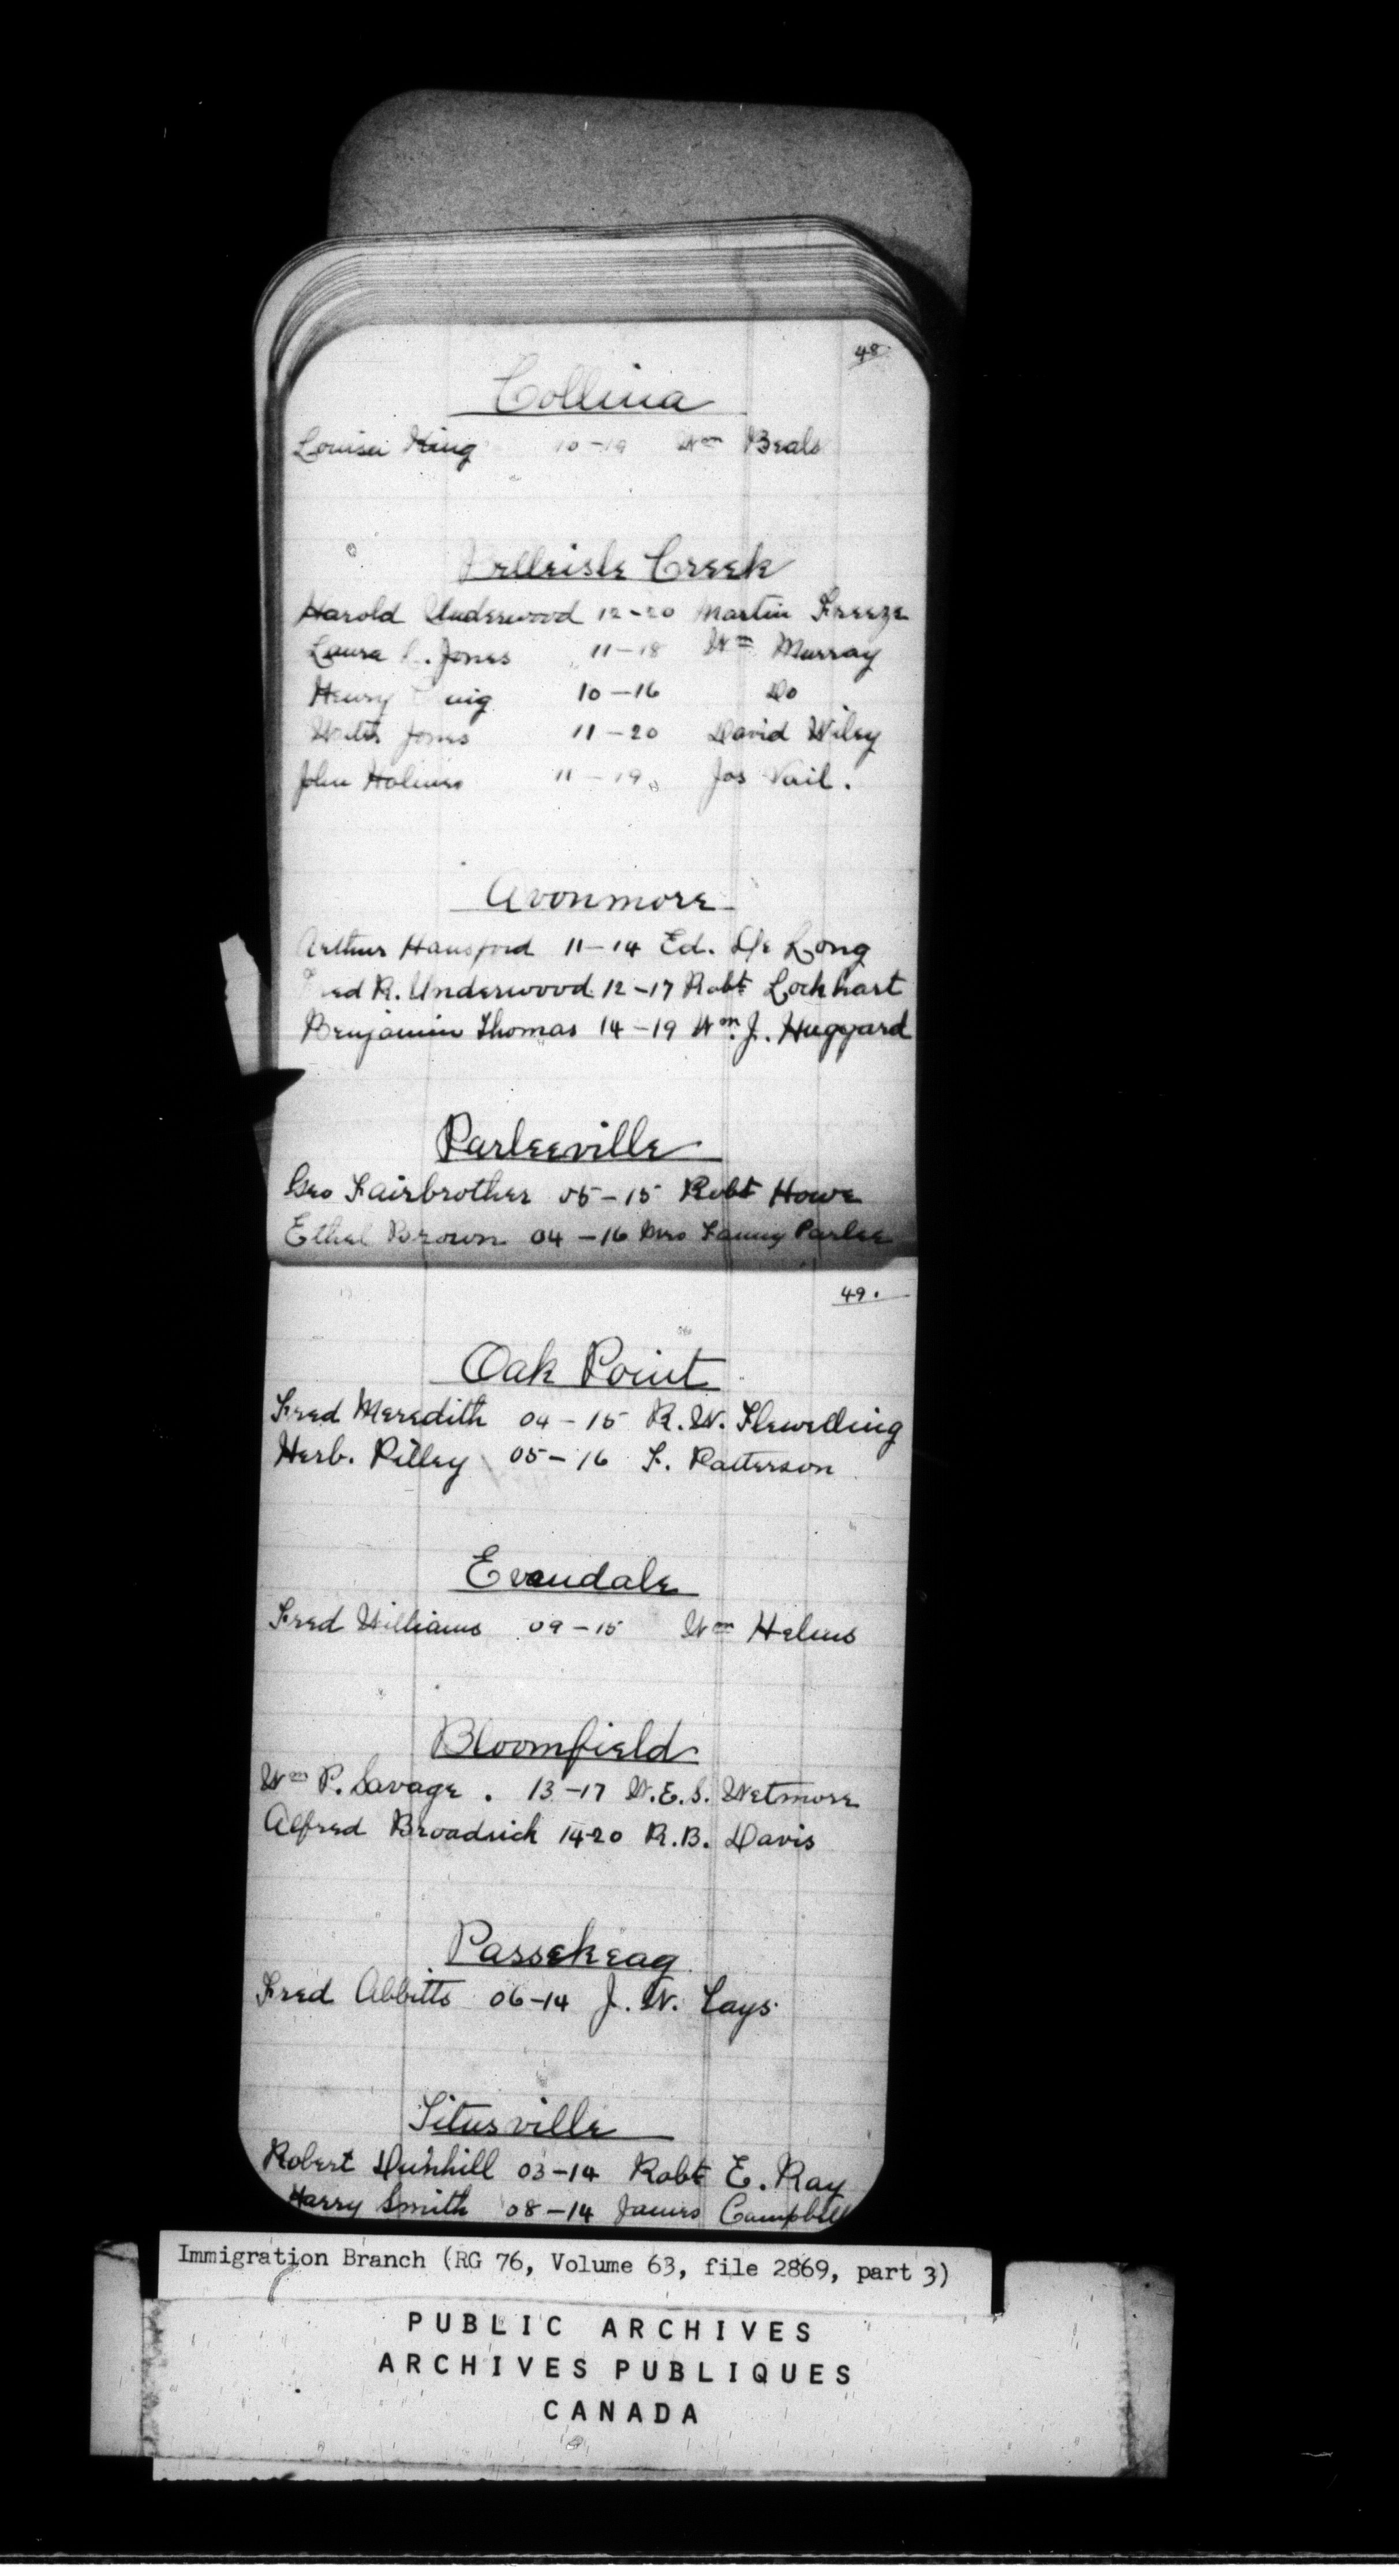 48
Collina
Louisa King 10-19 Wm Beals
Belleisle Creek
Harold Underwood 12-20 Martin Freeze
Laura Jones 11-18 Wm Murray
Henry 10-16 Do
Jones 11-20 David Wiley
John Holmes 11-19 Jos Vail.
Avonmore
Arthur Hansford 11-14 Ed. De Long
Fred R. Underwood 12-17 Robt Lockhart
Benjamin Thomas 14-19 Wm. J. Huggard
Parleeville
Geo Fairbrother 05-15 Robt Howe
Ethel Brown 04-16 Mrs Fanny Parlee
49.
Oak Point
Fred Meredith 04-15 R. W. Flewelling
Herb. Pilley 05-16 F. Patterson
Evandale
Fred Williams 09-15 Wm Helms
Bloomfield
Wm P. Savage. 13-17 W.E.S. Wetmore
Alfred Broadrick 14-20 R.B. Davis
Passekeag
Fred Abbitts 06-14 J. W. Lays
Titusville
Robert Dunhill 03-14 Robt E. Ray
Harry Smith 08-14 James Campbell
Immigration Branch (RG 76, Volume 63, file 2869, part 3)
PUBLIC ARCHIVES
ARCHIVES PUBLIQUES
CANADA